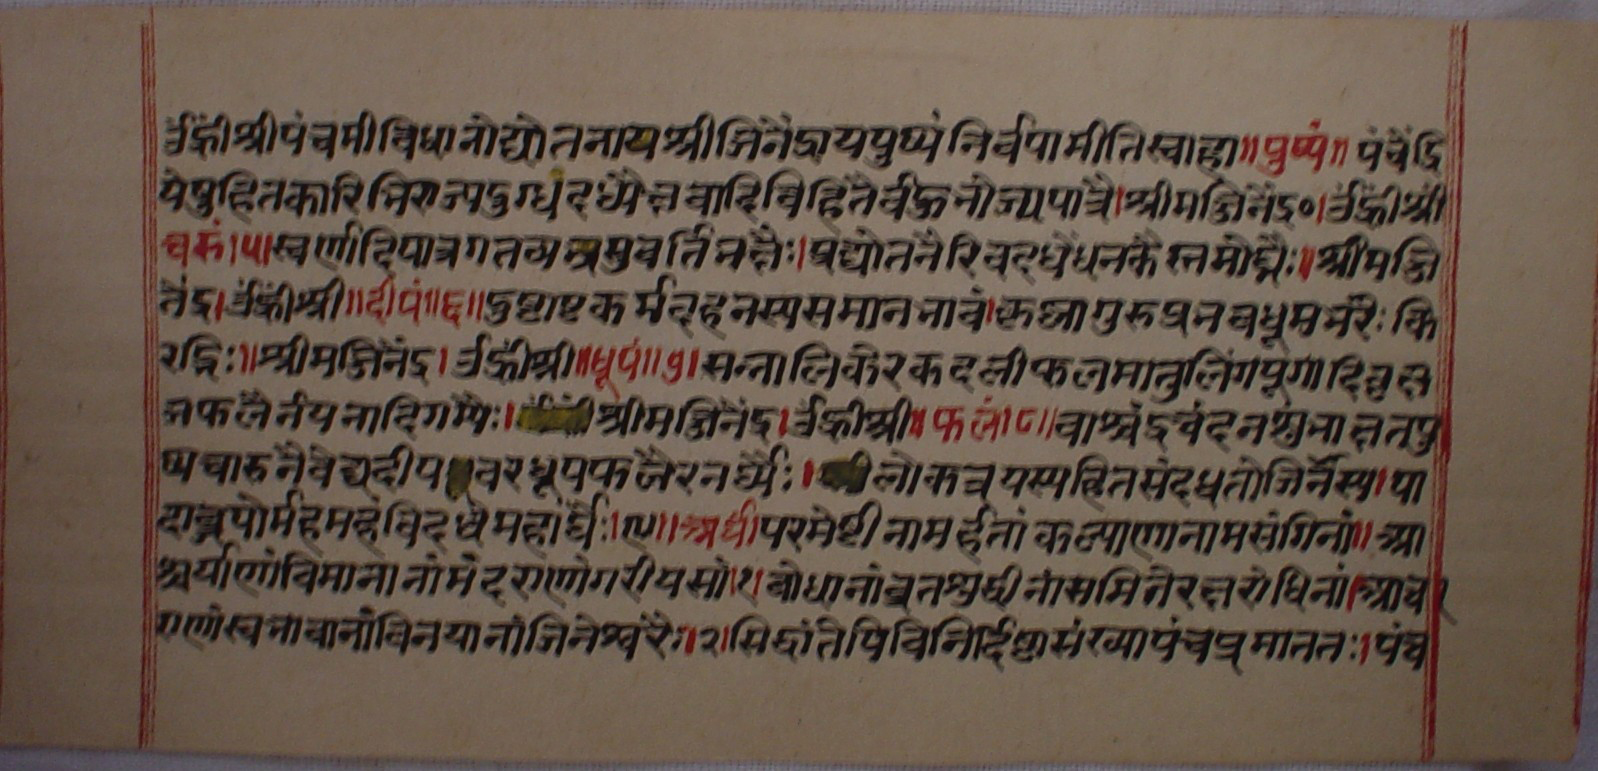 ॐह्रीश्रीपंचमीविधानोद्योतनायश्रीजिनेंद्रायपुष्पंनिर्वपामीतिस्वाहा॥पुष्पं॥पंचेंद्रि
येषुहितकारिभिराज्यदुग्धं वादिविहितैर्वरुभोज्यपात्रै।श्रीमज्जिनेंद्र०।ॐह्रीश्री
चरुं।५।स्वर्णादिपात्रगत वर्तिनक्तैः।प्रद्योतनैरिव ॥श्रीमज्जि
नेंद्र।ॐह्रीश्री॥दीपं॥६॥दुष्टाष्टकर्मदहनस्यसमानभावं।कृष्नागुरु धूमभरैः कि
रद्भिः॥श्रीमज्जिनेंद्र।ॐह्रीश्री॥धूपं॥७॥सन्नालिकेरकदलीफलमातुलिंगपूगादि
फलैर्नयनादिगम्यैः। श्रीमज्जिनेंद्र।ॐह्रीश्री॥फलं।८॥वाश्चंद्रचंदनशुभाक्षतपु
ष्पचारुनैवेद्यदीप वरधूपफलैरनर्घ्यैः। लोकत्रयस्यहितसंदधतोजिनस्य।पा
दाब्जयोर्महमहंविदधेमहार्घैः।९॥अर्घ॥परमेष्टीनामर्हतांकल्याणानामसंगिनां॥आ
श्चर्याणांविमानानांमंदराणांगरीयसां।१।बोधानांव्रतशुद्धीनांसमितेरक्षरोधिनां।आव
राणांस्वभावानांविनयानांजिनेश्वरैः।२।सिद्धांतेपिविनिर्दिष्टासंख्यापंचप्रमानतः।पंच